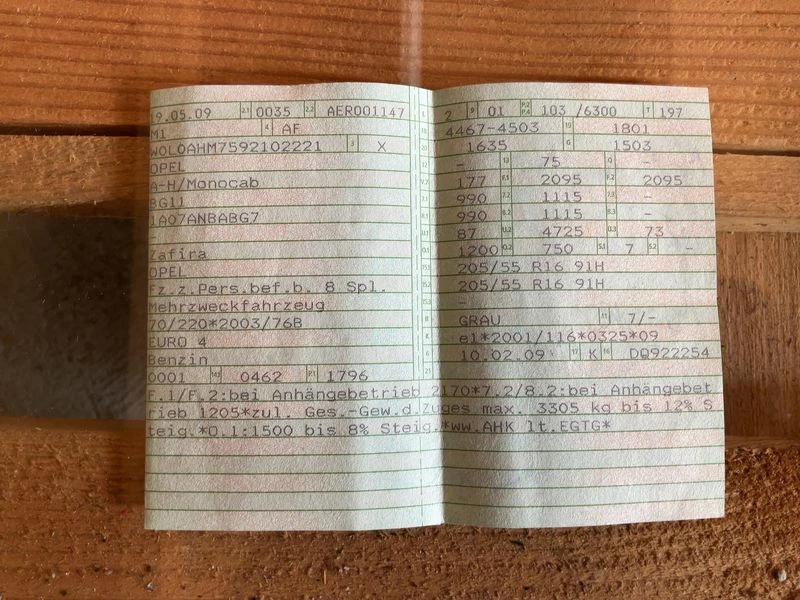 19.05.09 2.1 0035 2.2 AER001147
M1 4 AF
WOLOAHM7592102221 3 X
OPEL
A-H/Monocab
BG11
1A07ANBABG7
Zafira
OPEL
Fz.z.Pers.bef.b. 8 Spl.
Mehrzweckfahrzeug
70/220*2003/76B
EURO 4
Benzin
0001 0462 P.1 1796
L 2 9 01 P.2 P.4 103 /6300 T 197
18 4467-4503 19 1801
20 1635 G 1503
12 - 13 75 Q -
V.7 177 F.1 2095 F.2 2095
7.1 990 7.2 1115 7.3 -
8.1 990 8.2 1115 8.3 -
U.1 87 U.2 4725 U.3 73
O.1 1200 O.2 750 S.1 7 S.2 -
15.1 205/55 R16 91H
15.2 205/55 R16 91H
15.3 -
R GRAU 11 7/-
K e1*2001/116*0325*09
6 10.02.09 17 K 16 DQ922254
21
F.1/F.2:bei Anhängebetrieb 2170*7.2/8.2:bei Anhängebet
rieb 1205*zul. Ges.-Gew.d.Zuges max. 3305 kg bis 12% S
teig.*O.1:1500 bis 8% Steig.*ww.AHK lt.EGTG*